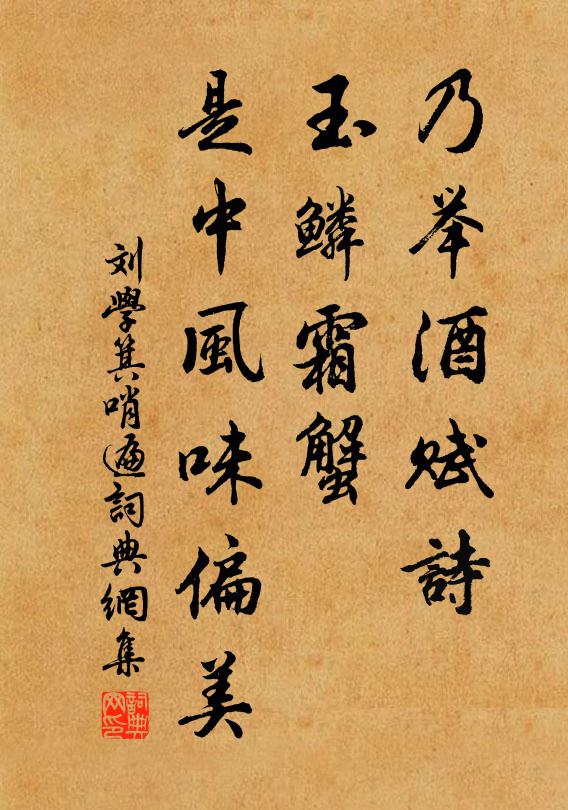 乃举酒赋詩
玉鳞霜蟹
是中風味偏美
刘學箕哨遍詞典網集
詞典网印